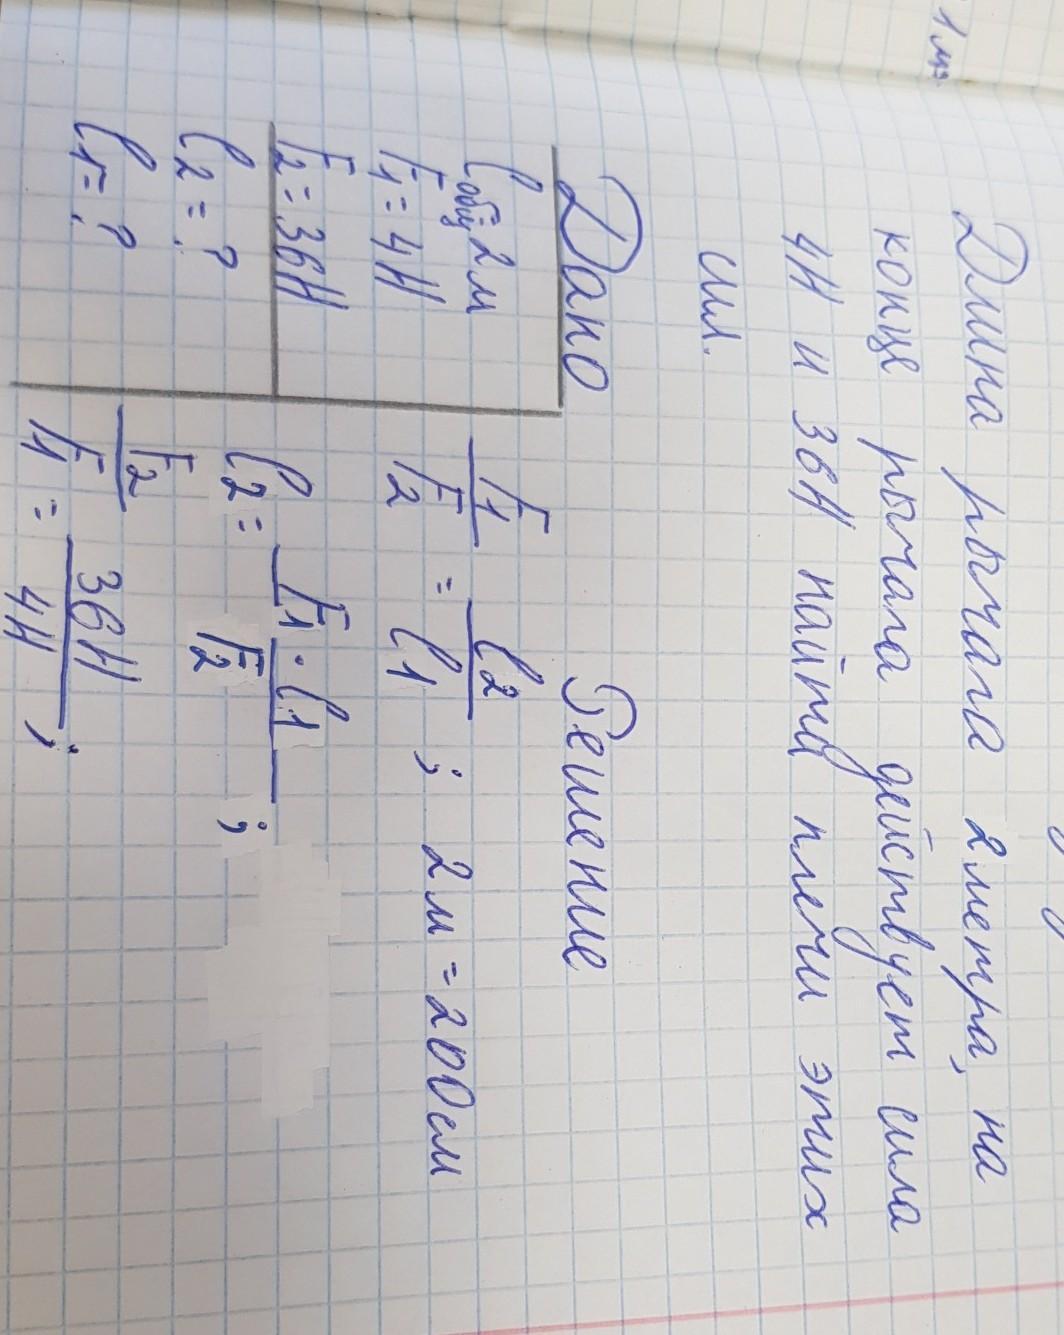 Длина рычага 2 метра, на
конце рычага действует сила
4Н и 36Н найти плечи этих
сил.
Дано Решение
lобщ 2м
F1 = 4Н
F2 = 36Н
l2 = ?
l1 = ?
F1/F2 = l2/l1 ; 2м = 200см
l2 = F1 · l1/F2 ;
F2/F1 = 36Н/4Н ;